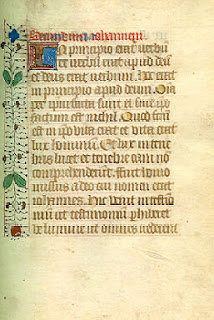 Secundum iohannem
In principio erat verbū
et verbū erat apud deū
et deus erat verbum. Hoc erat
in principio apud deum. Oīa
per ipm facta sunt et sine ipo
factum est nichil. Quod fcm̄
est in ipo vita erat et vita erat
lux hominum. Et lux in tene
bris lucet et tenebre eam nō
comprehenderunt. fuit homo
missus a deo cui nomen erat
iohannes. Hic venit in testīo
nium ut testimonium phiberet
de lumine ut omnes crederent